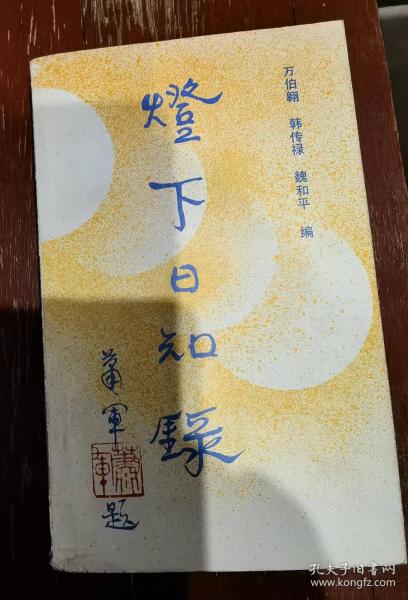 万伯翱 韩传禄 魏和平 编
燈下日知錄
萧軍题
蕭軍
孔夫子旧书网
www.kongfz.com